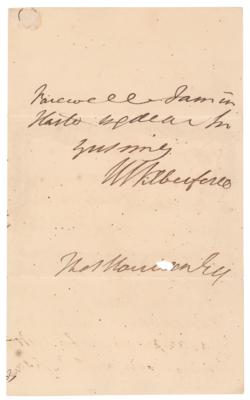 Farewell I am in
Haste my dear Sir
yrs sincy
W Wilberforce
Thos Harrison Esq